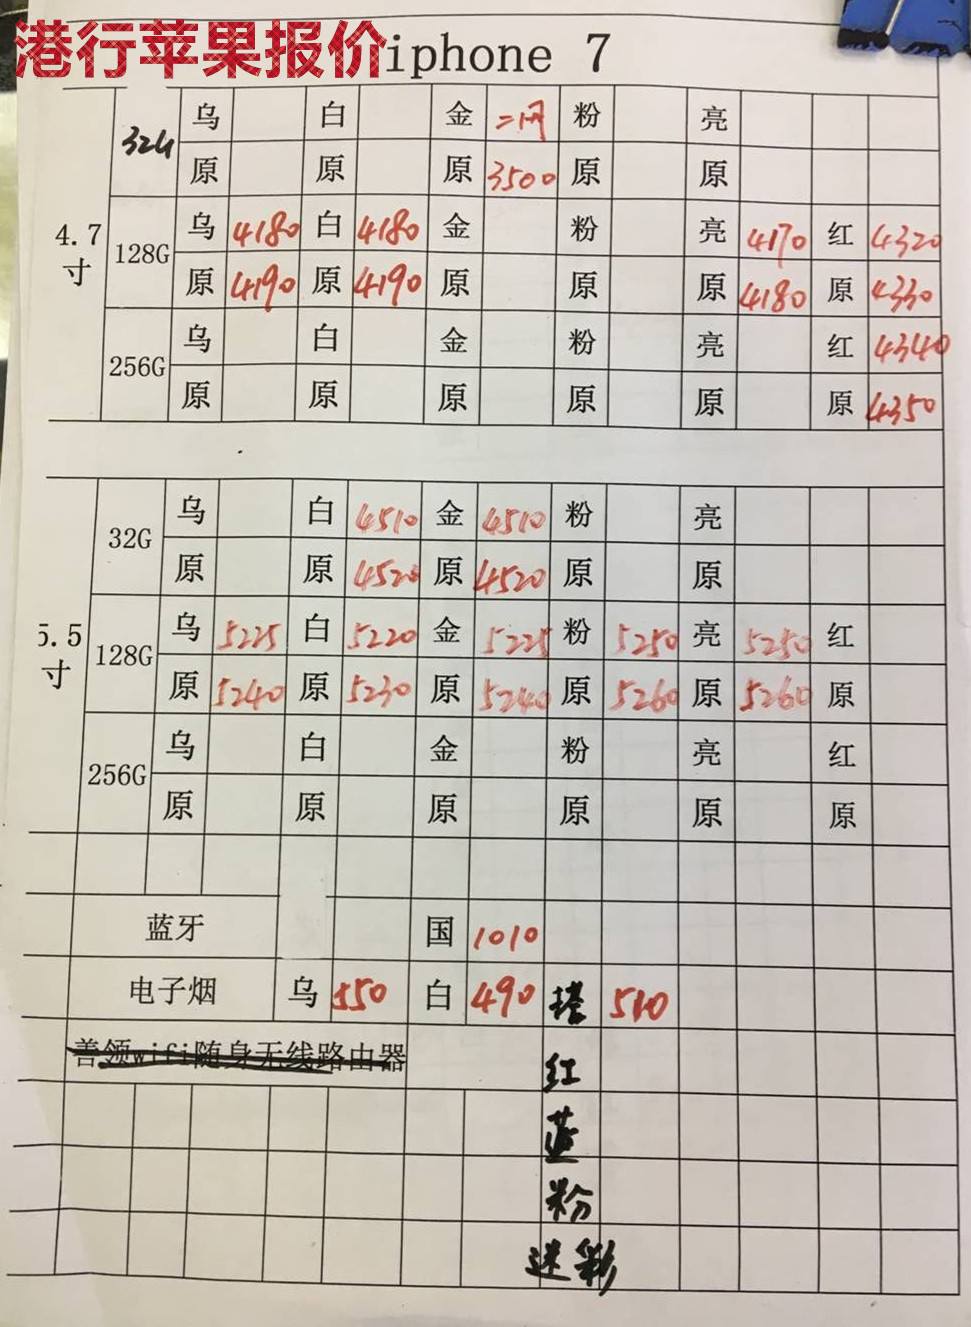 港行苹果报价iphone 7
32G 乌 白 金 二网 粉 亮
原 原 原 3500 原 原
4.7寸 128G 乌 4180 白 4180 金 粉 亮 4170 红 4320
原 4190 原 4190 原 原 原 4180 原 4330
256G 乌 白 金 粉 亮 红 4340
原 原 原 原 原 原 4350
32G 乌 白 4510 金 4510 粉 亮
原 原 4520 原 4520 原 原
5.5寸 128G 乌 5225 白 5220 金 5225 粉 5250 亮 5250 红
原 5240 原 5230 原 5240 原 5260 原 5260 原
256G 乌 白 金 粉 亮 红
原 原 原 原 原 原
蓝牙 国 1010
电子烟 乌 550 白 490 510
善领wifi随身无线路由器 红
蓝
粉
迷彩